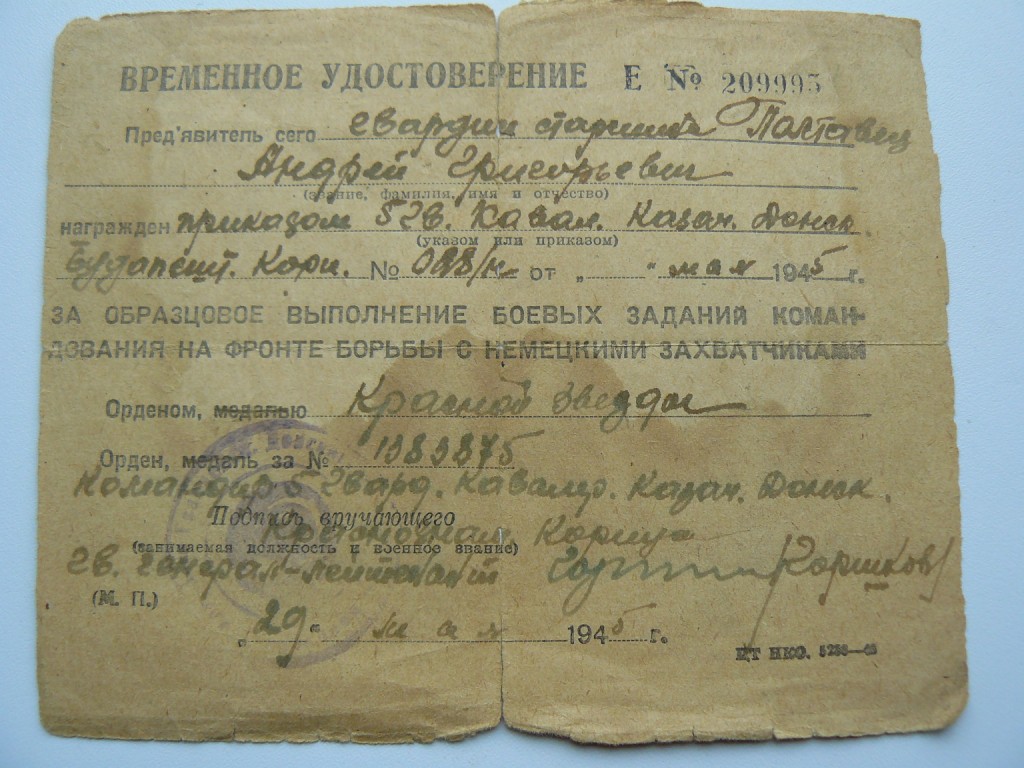 ВРЕМЕННОЕ УДОСТОВЕРЕНИЕ Е № 209995
Пред'явитель сего гвардии старшина Полтавец
Андрей Григорьевич
(звание, фамилия, имя и отчество)
награжден приказом 5 гв. Кавал. Казач. Донск.
(указом или приказом)
Будапешт. Корп. № /н от „ “ мая 1945 г.
ЗА ОБРАЗЦОВОЕ ВЫПОЛНЕНИЕ БОЕВЫХ ЗАДАНИЙ КОМАН-
ДОВАНИЯ НА ФРОНТЕ БОРЬБЫ С НЕМЕЦКИМИ ЗАХВАТЧИКАМИ
Орденом, медалью Красной звезды
Орден, медаль за № 1989875
Командир 5 Гвард. Кавалер. Казач. Донск.
Подпись вручающего
Краснознам. Корпуса
(занимаемая должность и военное звание)
гв. генерал-лейтенант (Горшков)
(М. П.)
„29“ мая 1945 г.